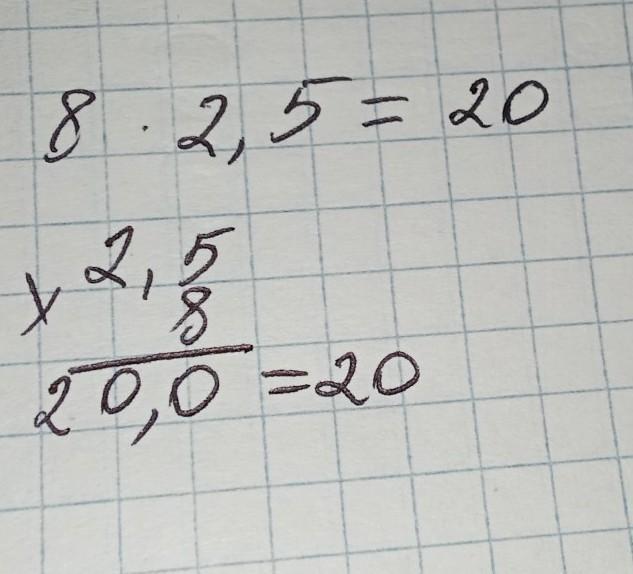 8 · 2,5 = 20
x 2,5
8
20,0 = 20